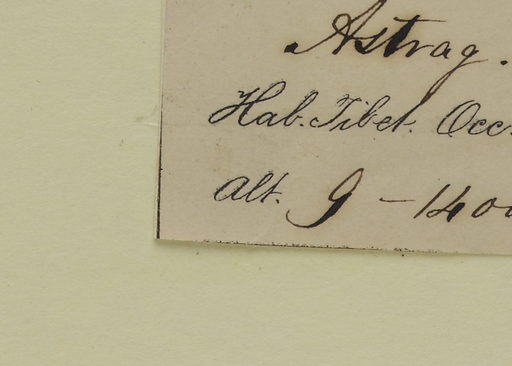 Astrag.
Hab. Tibet. Occ.
Alt. 9 - 1400